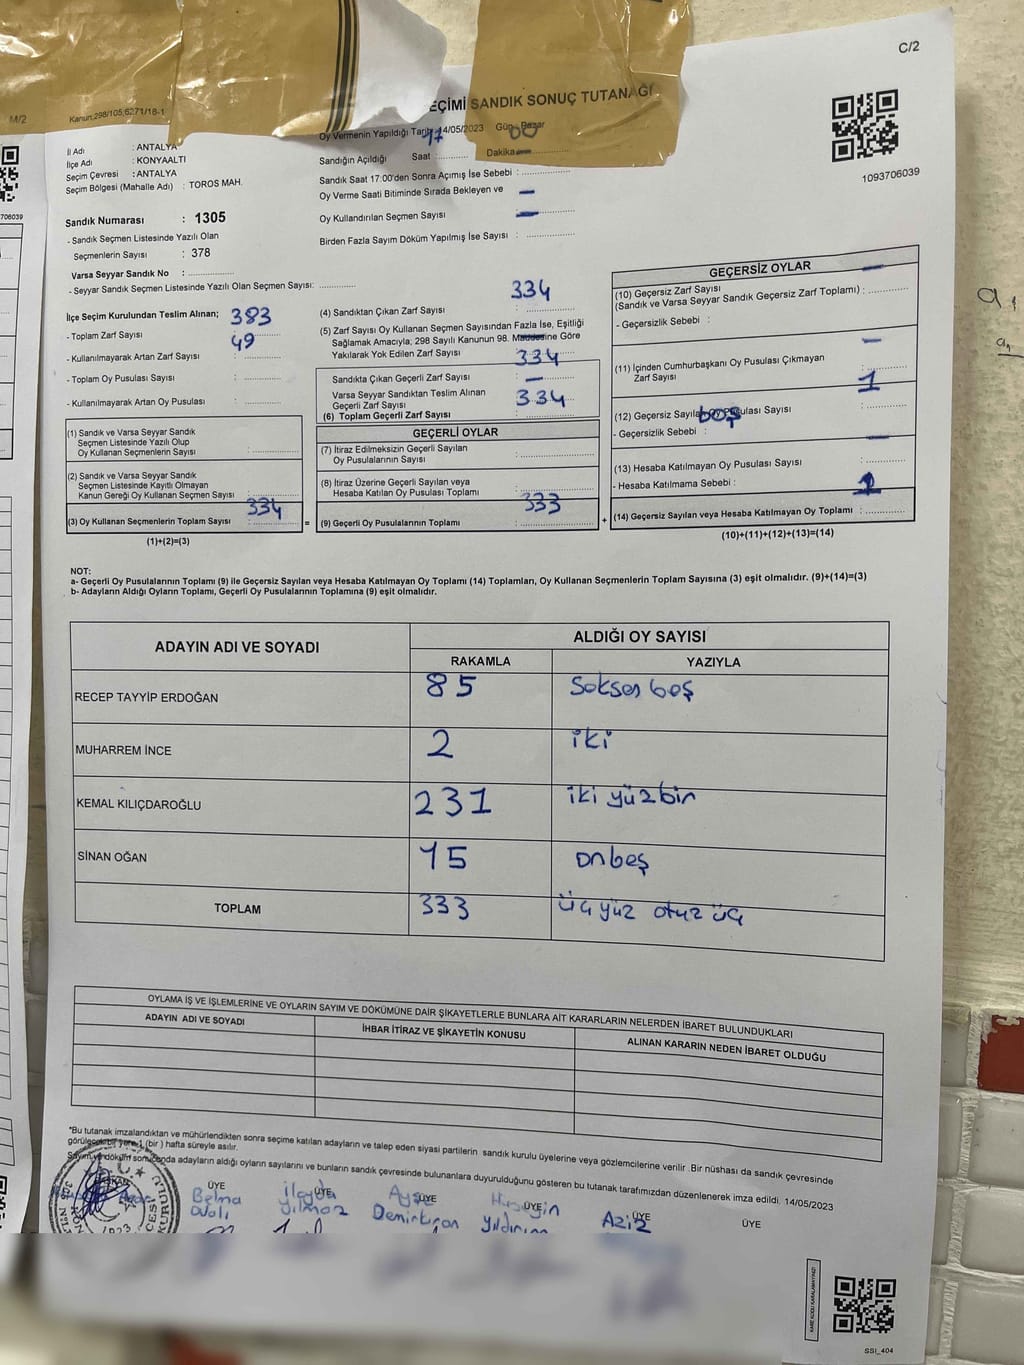 C/2
M/2
Kanun:298/105,6271/18-1
EÇİMİ SANDIK SONUÇ TUTANAĞI
Oy Vermenin Yapıldığı Tarih 14/05/2023 Gün Pazar
Sandığın Açıldığı Saat : 17 Dakika 00
Sandık Saat 17:00'den Sonra Açımış İse Sebebi :
Oy Verme Saati Bitiminde Sırada Bekleyen ve
Oy Kullandırılan Seçmen Sayısı : —
Birden Fazla Sayım Döküm Yapılmış İse Sayısı :
1093706039
706039
İl Adı : ANTALYA
İlçe Adı : KONYAALTI
Seçim Çevresi : ANTALYA
Seçim Bölgesi (Mahalle Adı) : TOROS MAH.
Sandık Numarası : 1305
- Sandık Seçmen Listesinde Yazılı Olan
Seçmenlerin Sayısı : 378
Varsa Seyyar Sandık No :
- Seyyar Sandık Seçmen Listesinde Yazılı Olan Seçmen Sayısı:
İlçe Seçim Kurulundan Teslim Alınan;
- Toplam Zarf Sayısı : 383
- Kullanılmayarak Artan Zarf Sayısı : 49
- Toplam Oy Pusulası Sayısı :
- Kullanılmayarak Artan Oy Pusulası :
(1) Sandık ve Varsa Seyyar Sandık
Seçmen Listesinde Yazılı Olup
Oy Kullanan Seçmenlerin Sayısı :
(2) Sandık ve Varsa Seyyar Sandık
Seçmen Listesinde Kayıtlı Olmayan
Kanun Gereği Oy Kullanan Seçmen Sayısı :
(3) Oy Kullanan Seçmenlerin Toplam Sayısı : 334
(1)+(2)=(3)
=
(4) Sandıktan Çıkan Zarf Sayısı : 334
(5) Zarf Sayısı Oy Kullanan Seçmen Sayısından Fazla İse, Eşitliği
Sağlamak Amacıyla; 298 Sayılı Kanunun 98. Maddesine Göre
Yakılarak Yok Edilen Zarf Sayısı : —
Sandıkta Çıkan Geçerli Zarf Sayısı : 334
Varsa Seyyar Sandıktan Teslim Alınan
Geçerli Zarf Sayısı : —
(6) Toplam Geçerli Zarf Sayısı : 334
GEÇERLİ OYLAR
(7) İtiraz Edilmeksizin Geçerli Sayılan
Oy Pusulalarının Sayısı :
(8) İtiraz Üzerine Geçerli Sayılan veya
Hesaba Katılan Oy Pusulası Toplamı :
(9) Geçerli Oy Pusulalarının Toplamı : 333
+
GEÇERSİZ OYLAR
(10) Geçersiz Zarf Sayısı
(Sandık ve Varsa Seyyar Sandık Geçersiz Zarf Toplamı) : —
- Geçersizlik Sebebi :
(11) İçinden Cumhurbaşkanı Oy Pusulası Çıkmayan
Zarf Sayısı : —
(12) Geçersiz Sayılan Oy Pusulası Sayısı : 1
- Geçersizlik Sebebi : boş
(13) Hesaba Katılmayan Oy Pusulası Sayısı : —
- Hesaba Katılmama Sebebi :
(14) Geçersiz Sayılan veya Hesaba Katılmayan Oy Toplamı : 1
(10)+(11)+(12)+(13)=(14)
NOT:
a- Geçerli Oy Pusulalarının Toplamı (9) ile Geçersiz Sayılan veya Hesaba Katılmayan Oy Toplamı (14) Toplamları, Oy Kullanan Seçmenlerin Toplam Sayısına (3) eşit olmalıdır. (9)+(14)=(3)
b- Adayların Aldığı Oyların Toplamı, Geçerli Oy Pusulalarının Toplamına (9) eşit olmalıdır.
ADAYIN ADI VE SOYADI
ALDIĞI OY SAYISI
RAKAMLA YAZIYLA
RECEP TAYYİP ERDOĞAN 85 Seksen beş
MUHARREM İNCE 2 iki
KEMAL KILIÇDAROĞLU 231 iki yüzbir
SİNAN OĞAN 15 onbeş
TOPLAM 333 üç yüz otuz üç
OYLAMA İŞ VE İŞLEMLERİNE VE OYLARIN SAYIM VE DÖKÜMÜNE DAİR ŞİKAYETLERLE BUNLARA AİT KARARLARIN NELERDEN İBARET BULUNDUKLARI
ADAYIN ADI VE SOYADI
İHBAR İTİRAZ VE ŞİKAYETİN KONUSU
ALINAN KARARIN NEDEN İBARET OLDUĞU
*Bu tutanak imzalandıktan ve mühürlendikten sonra seçime katılan adayların ve talep eden siyasi partilerin sandık kurulu üyelerine veya gözlemcilerine verilir .Bir nüshası da sandık çevresinde
görülecek bir yere 1 (bir ) hafta süreyle asılır.
Sayım ve döküm sonucunda adayların aldığı oyların sayılarını ve bunların sandık çevresinde bulunanlara duyurulduğunu gösteren bu tutanak tarafımızdan düzenlenerek imza edildi. 14/05/2023
ÜYE ÜYE ÜYE ÜYE ÜYE ÜYE
Belma
İleyda Yılmaz
Ayşe Demirkıran
Hüseyin Yıldırım
Aziz
SSI_404